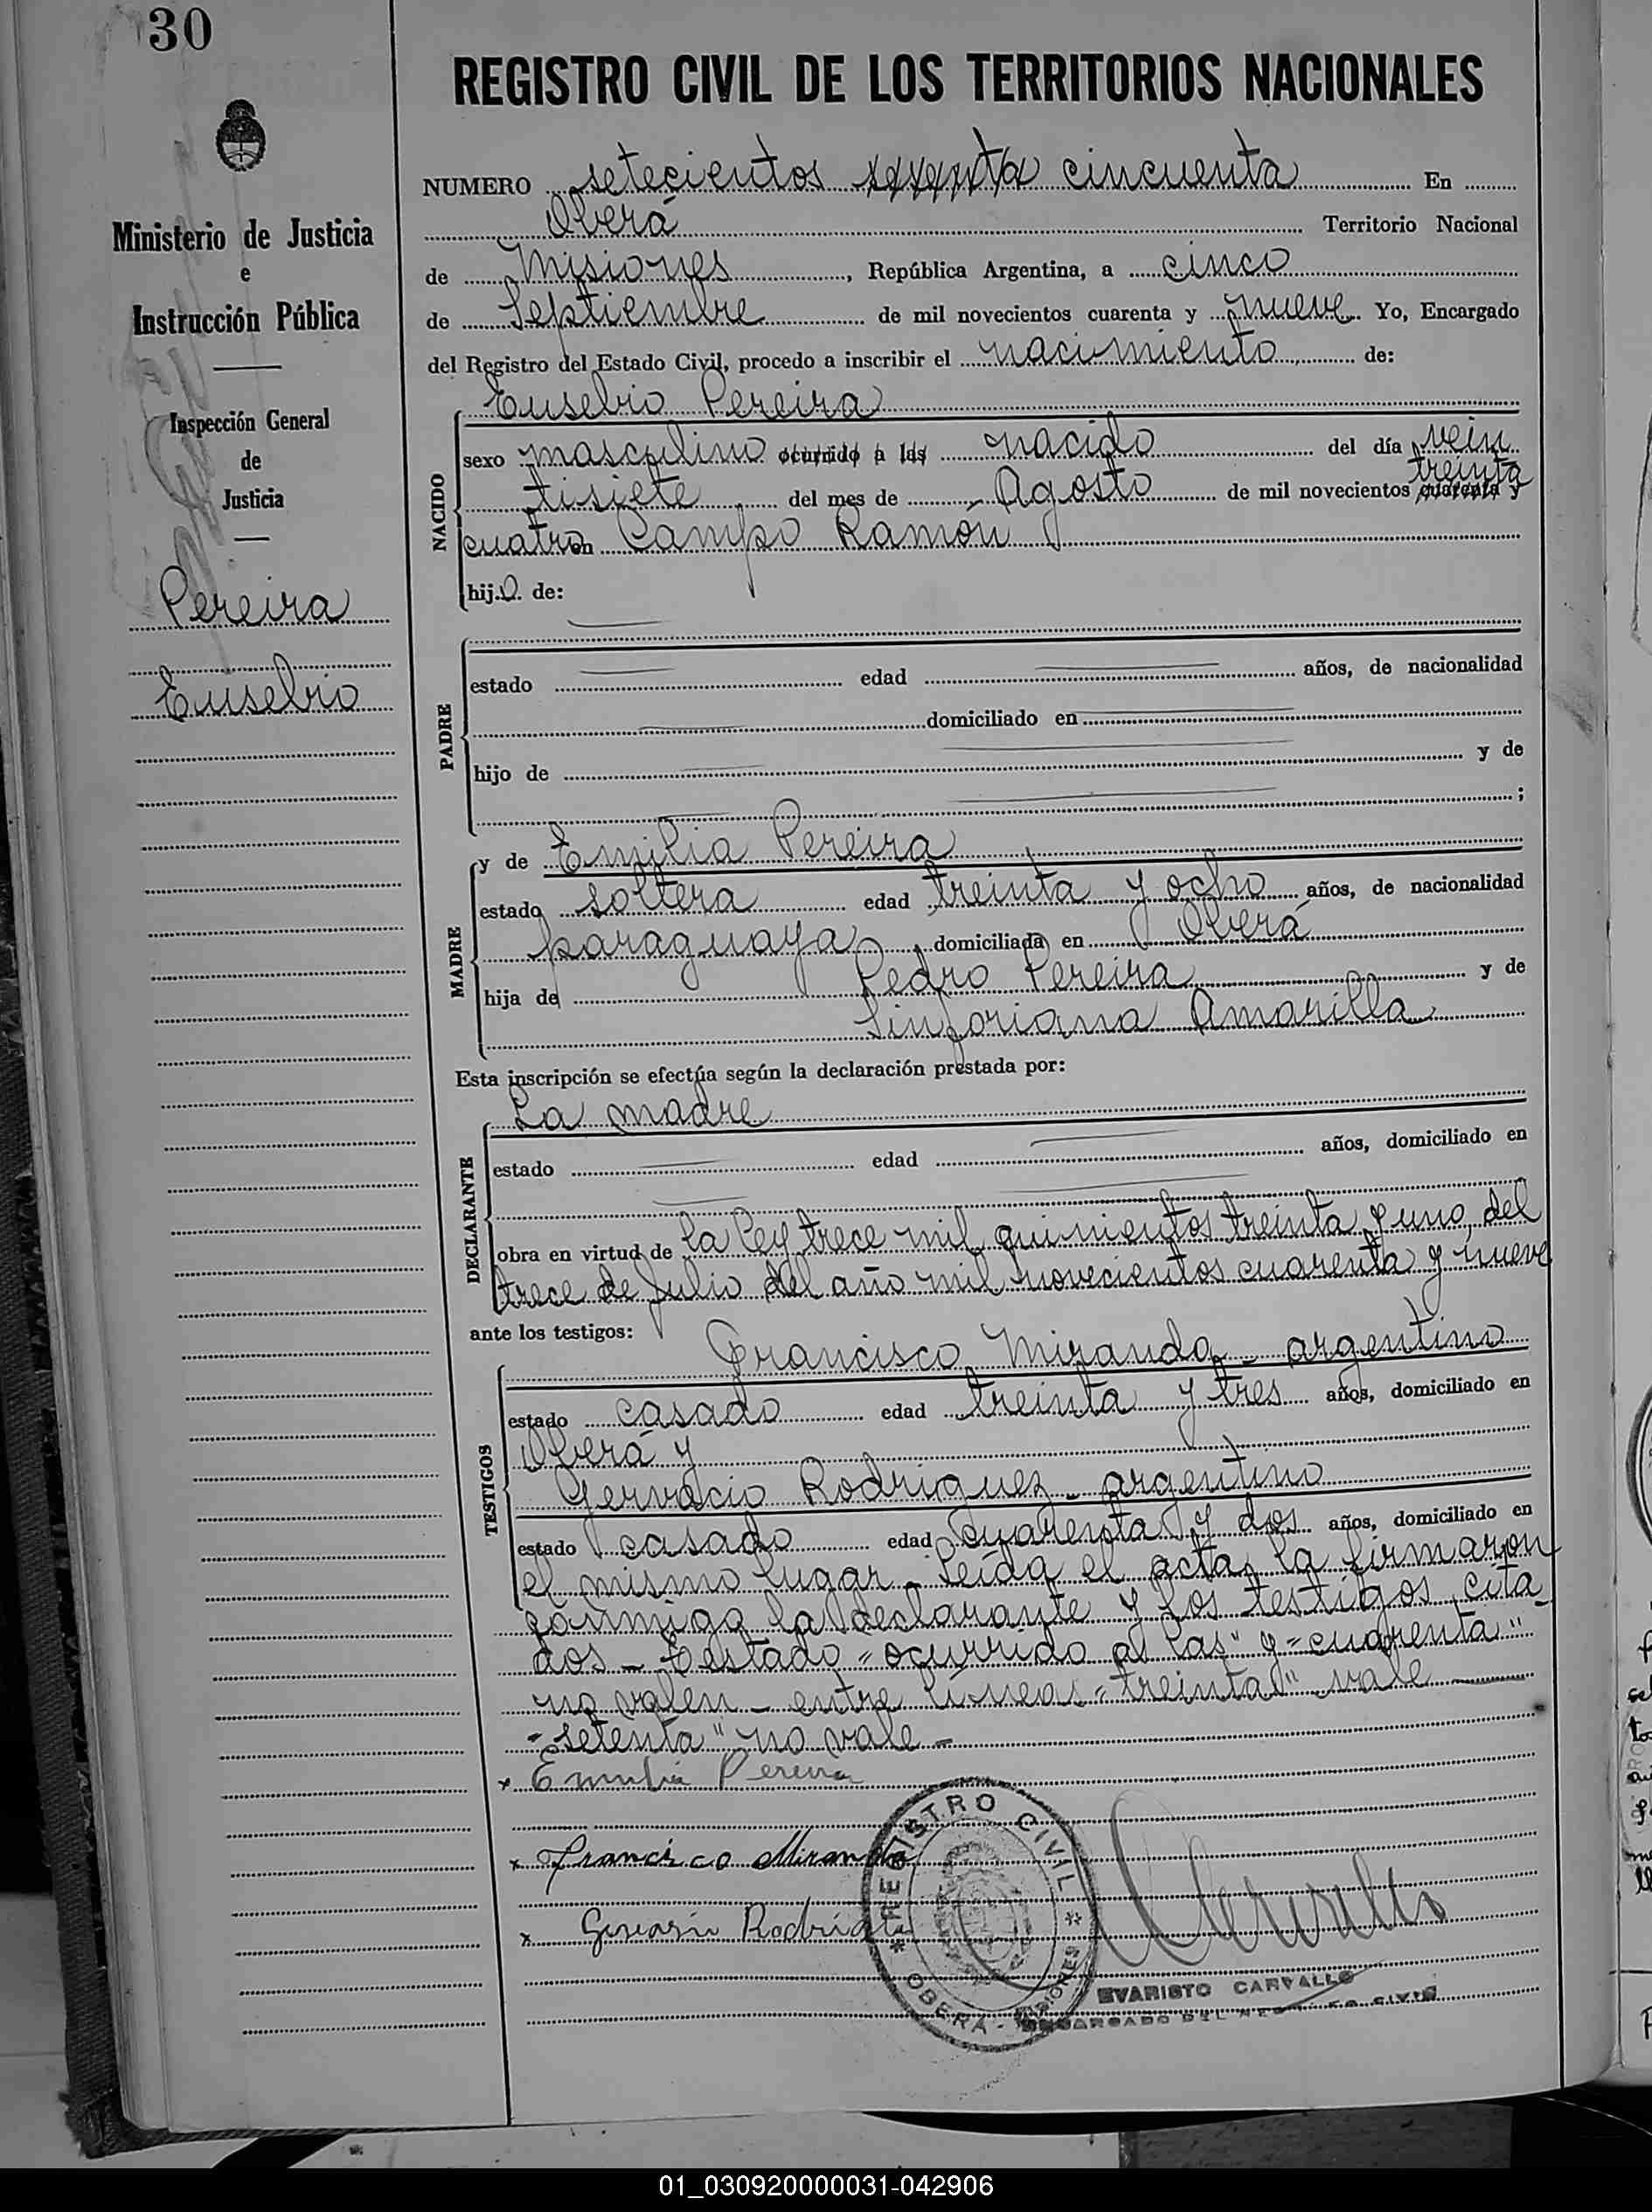 30
Ministerio de Justicia
e
Instrucción Pública
Inspección General
de
Justicia
Pereira
Eusebio
REGISTRO CIVIL DE LOS TERRITORIOS NACIONALES
NUMERO setecientos setenta cincuenta En
Oberá Territorio Nacional
de Misiones, República Argentina, a cinco
de Septiembre de mil novecientos cuarenta y nueve. Yo, Encargado
del Registro del Estado Civil, procedo a inscribir el nacimiento de:
NACIDO
Eusebio Pereira
sexo masculino ocurrido a las nacido del día vein
treinta
tisiete del mes de Agosto de mil novecientos cuarenta y
cuatro en Campo Ramón
hijo de:
PADRE
estado edad años, de nacionalidad
domiciliado en
hijo de y de
;
MADRE
y de Emilia Pereira
estado soltera edad treinta y ocho años, de nacionalidad
paraguaya, domiciliada en Oberá
hija de Pedro Pereira y de
Sinforiana Amarilla
Esta inscripción se efectúa según la declaración prestada por:
DECLARANTE
La madre
estado edad años, domiciliado en
obra en virtud de la Ley trece mil quinientos treinta y uno del
trece de Julio del año mil novecientos cuarenta y nueve
ante los testigos:
TESTIGOS
Francisco Miranda - argentino
estado casado edad treinta y tres años, domiciliado en
Oberá y
Gervacio Rodriguez - argentino
estado casado edad cuarenta y dos años, domiciliado en
el mismo lugar - Leída el acta, la firmaron
conmigo la declarante y los testigos cita-
dos - Testado "ocurrido a las" y "cuarenta"
no valen - entre líneas "treinta" vale
"setenta" no vale -
x Emilia Pereira
x Francisco Miranda
x
REGISTRO CIVIL
OBERÁ - MISIONES
EVARISTO CARVALLO
ENCARGADO DEL REGISTRO CIVIL
01_030920000031-042906